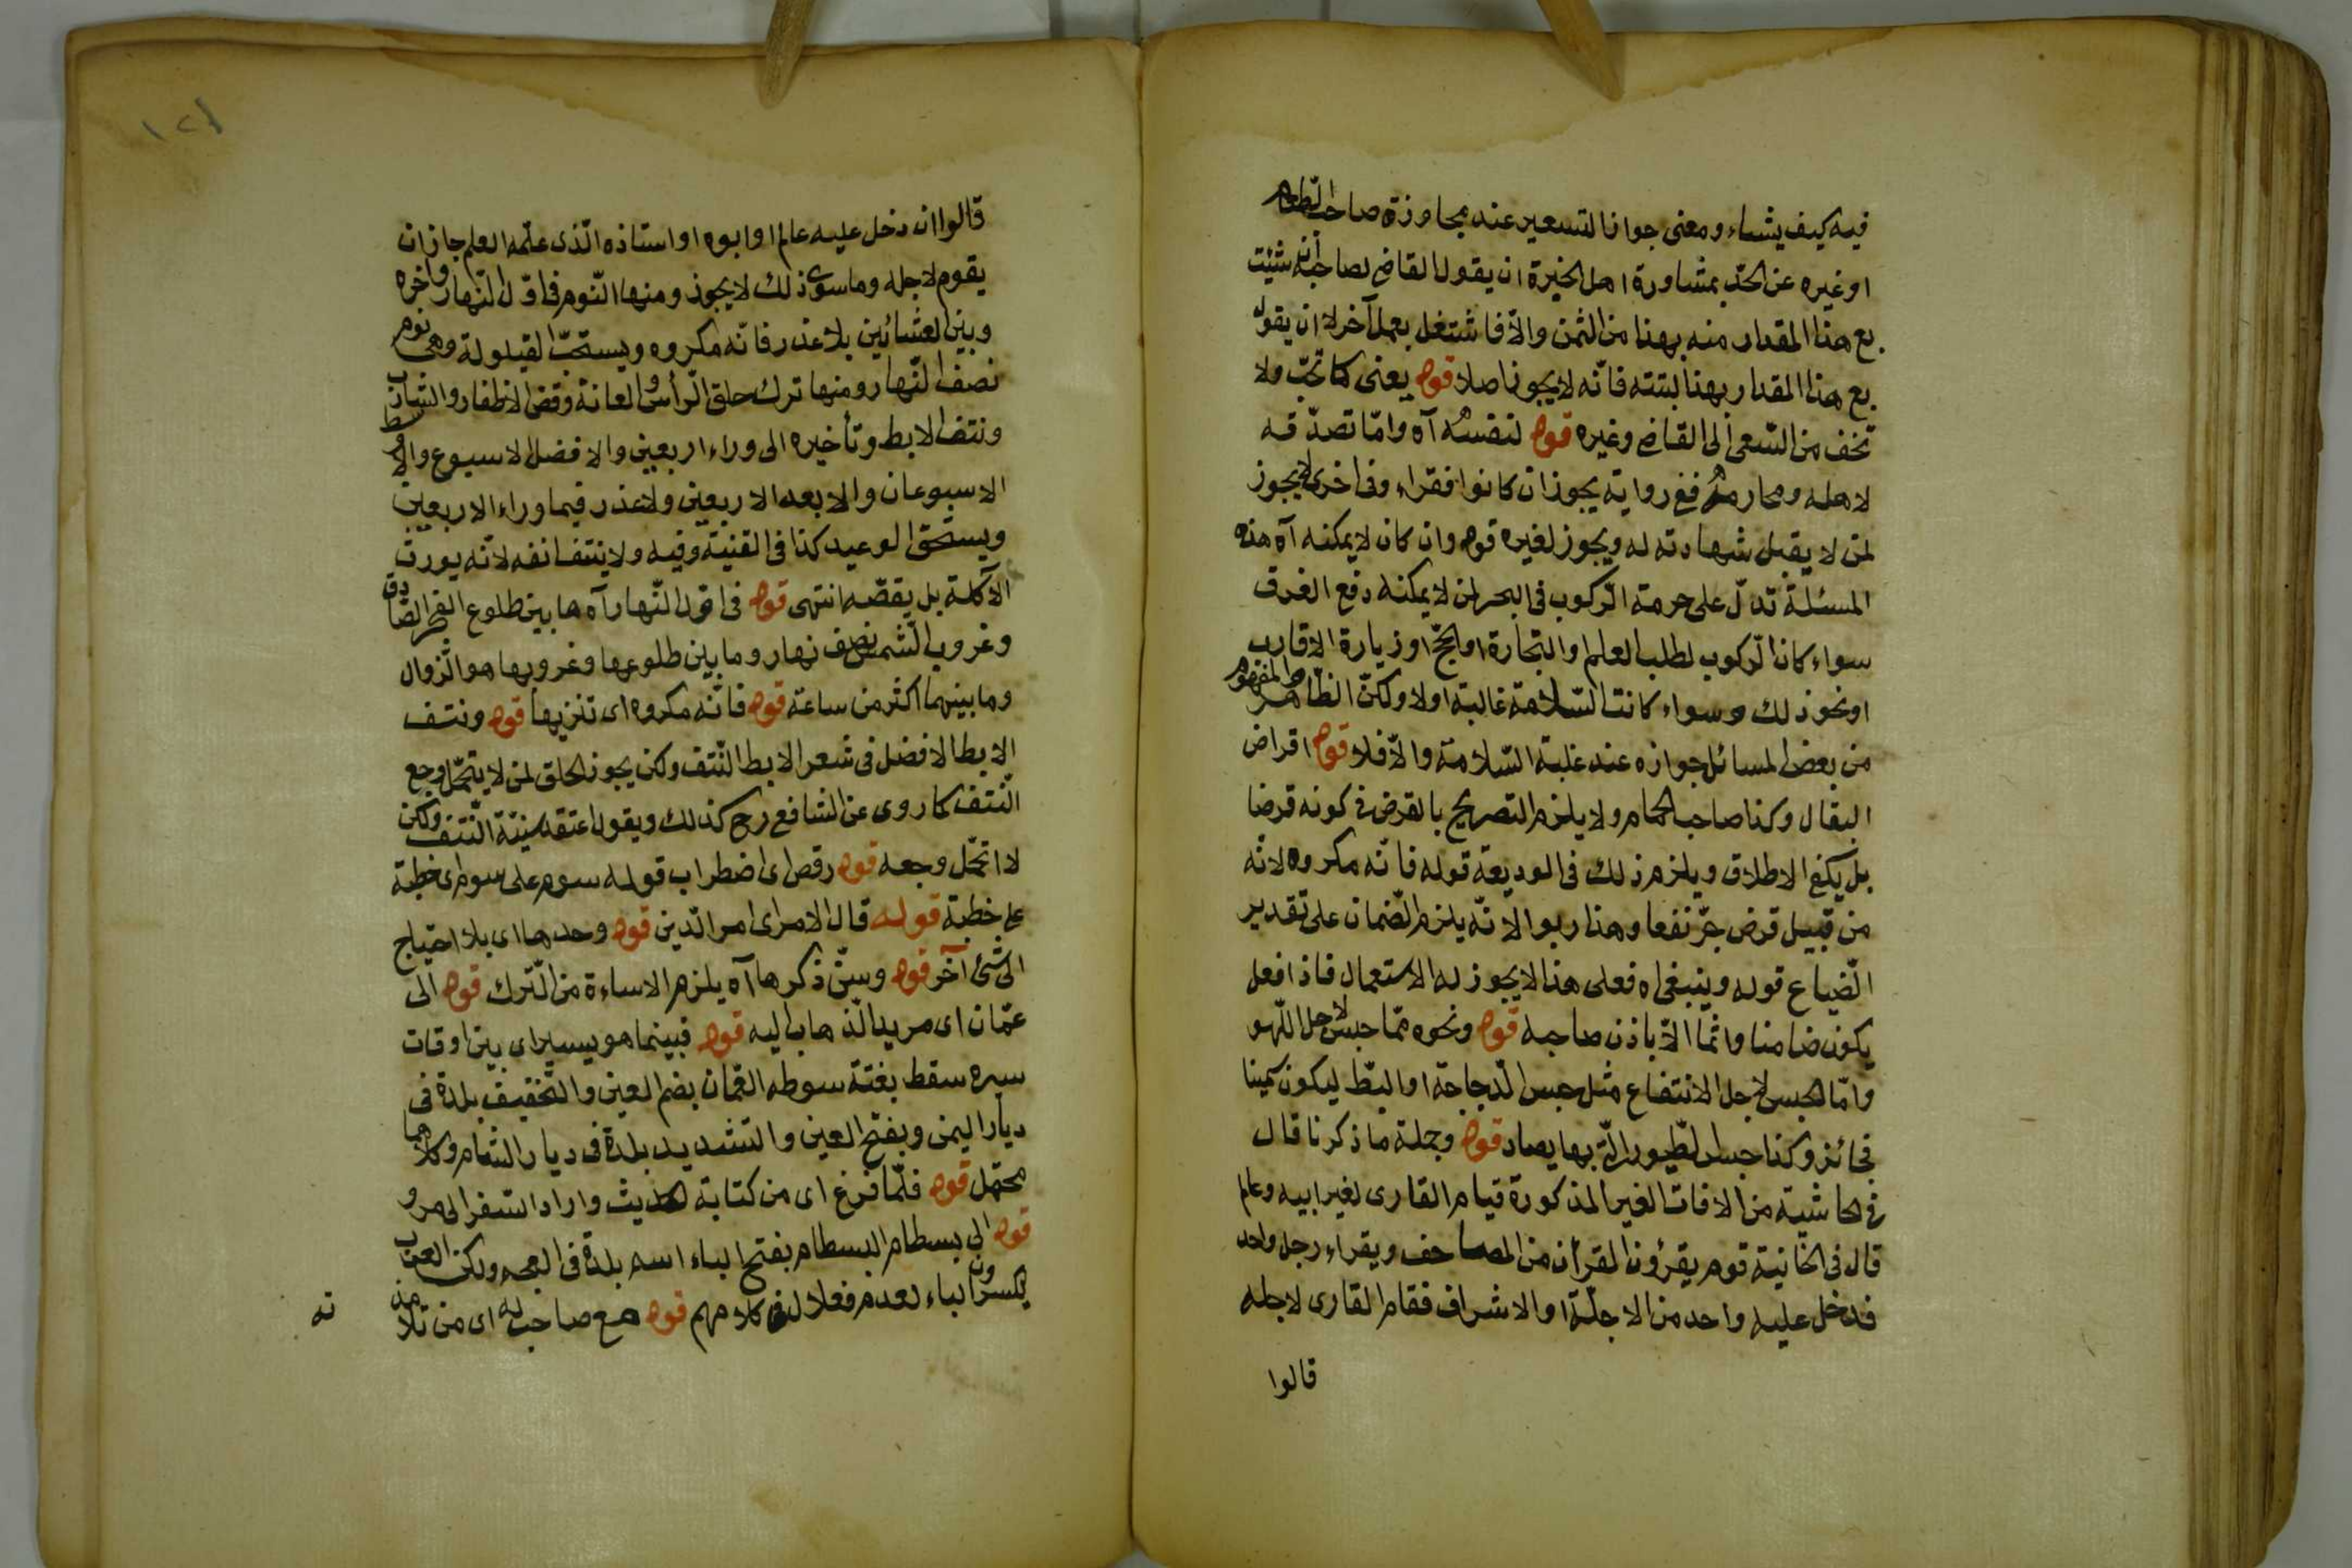 فيه كيف يشاء ومعنى جواز التسعير عند مجاوزة صاحب الطعام
او غيره عن الحد بمشاورة اهل الخبرة ان يقول القاضى لصاحبه ان شئت
بع هذا المقدار منه بهذا من الثمن والّا فاشتغل بعمل آخر لا ان يقول
بع هذا المقدار بهذا البتته فانّه لا يجوز اصلا قوله يعنى كما تحبّ ولا
تخف من السّعى الى القاضى وغيره قوله لنفسه آه وامّا تصدّقه
لاهله ومحارمه ففى رواية يجوز ان كانوا فقراء وفى اخرى لا يجوز
لمن لا يقبل شهادته له ويجوز لغيره قوله وان كان لا يمكنه آه هذه
المسئلة تدلّ على حرمة الرّكوب فى البحر لمن لا يمكنه دفع الغرق
سواء كان الرّكوب لطلب العلم والتجارة او الحجّ او زيارة الاقارب
او نحو ذلك وسواء كانت السّلامة غالبة اولا ولكنّ الظّاهر والمفهوم
من بعض المسائل جوازه عند غلبة السّلامة والّا فلا قوله اقراض
البقال وكذا صاحب الحمام ولا يلزم التصريح بالقرض فى كونه قرضا
بل يكفى الاطلاق ويلزم ذلك فى الوديعة قوله فانّه مكروه لانّه
من قبيل قرض جرّ نفعا وهذا ربوا لانّه يلزم الضّمان على تقدير
الضّياع قوله وينبغى اه فعلى هذا لا يجوز له الاستعمال فاذا فعل
يكون ضامنا واثما الّا باذن صاحبه قوله ونحوه ممّا حبس لاجل اللّهو
وامّا الحبس لاجل الانتفاع مثل حبس الدّجاجة او البطّ ليكون سمينا
فجائز وكذا حبس الطّيور الّتى بها يصاد قوله وجملة ما ذكرنا قال
فى الحاشية من الافات الغير المذكورة قيام القارى لغير ابيه وعالم
قال فى الخانية قوم يقرؤن القرأن من المصاحف ويقراء رجل واحد
فدخل عليه واحد من الاجلّة او الاشراف فقام القارى لاجله
قالوا
١٢١
قالوا ان دخل عليه عالم او ابوه او استاذه الّذى علّمه العلم جاز ان
يقوم لاجله وما سوى ذلك لا يجوز ومنها النّوم فى اوّل النّهار واخره
وبين العشائين بلا عذر فانّه مكروه ويستحبّ القيلولة وهى نوم
نصف النّهار ومنها ترك حلق الرأس والعانة وقصّ الاظفار والشارب
ونتف الابط وتأخيره الى وراء اربعين والافضل الاسبوع والاوسط
الاسبوعان والابعد الاربعين ولا عذر فيما وراء الاربعين
ويستحق الوعيد كذا فى القنية وفيه ولا ينتف انفه لانّه يورث
الآكلة بل يقصّه انتهى قوله فى اوّل النّهار آه ما بين طلوع الفجر الصّادق
وغروب الشمس نصف نهار وما بين طلوعها وغروبها هو الزّوال
وما بينهما اكثر من ساعة قوله فانّه مكروه اى تنزيها قوله ونتف
الابط الافضل فى شعر الابط النّتف ولكن يجوز الحلق لمن لا يتحمّل وجع
النّتف كما روى عن الشافعى رح كذلك ويقول اعتقد سنّيّة النّتف ولكن
لا اتحمّل وجعه قوله رقص اى اضطراب قوله سوم على سوم اى خطبة
على خطبة قوله قال الامر اى امر الدّين قوله وحدها اى بلا احتياج
الى شئ آخر قوله وسنّ ذكرها آه يلزم الاساءة من التّرك قوله الى
عمّان اى مريد الذّهاب اليه قوله فبينما هو يسير اى بين اوقات
سيره سقط بغتة سوطه العمان بضم العين والتّخفيف بلدة فى
ديار اليمن وبفتح العين والتشديد بلدة فى ديار الشام وكلاهما
محتمل قوله فلمّا فرغ اى من كتابة الحديث واراد السفر الى مرو
قوله الى بسطام البسطام بفتح الباء اسم بلدة فى العجم ولكن العرب
يكسرون الباء لعدم فعلال فى كلامهم قوله مع صاحب له اى من تلامذ
ته